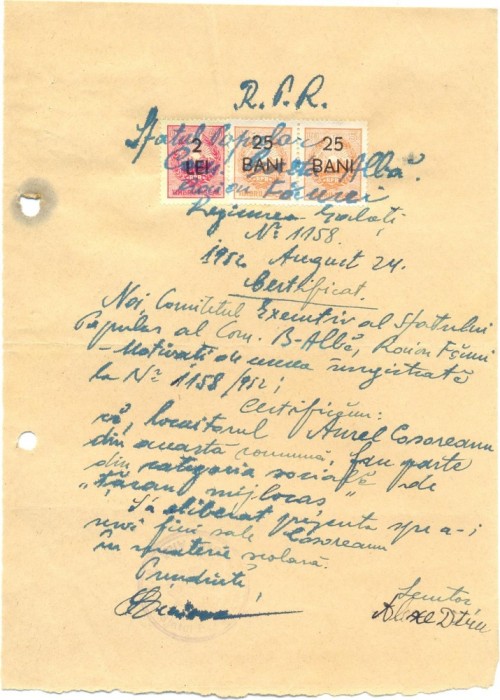 R. P. R.
Sfatul Popular
Com. Albă.
Raion Făurei
2 LEI
25 BANI
25 BANI
Regiunea Galați
Nº 1158.
1952 August 24.
Certificat.
Noi, Comitetul Executiv al Sfatului
Popular al Com. B-Albă, Raion Făurei
- Motivați de cererea înregistrată
la Nº 1158/952;
Certificăm:
că, locuitorul Aurel Cosoreanu
din această comună, face parte
din categoria socială de
"țăran mijlocaș"
S'a eliberat prezenta spre a-i
servi fiicei sale Cosoreanu
în materie școlară.
Președinte,
Secretar